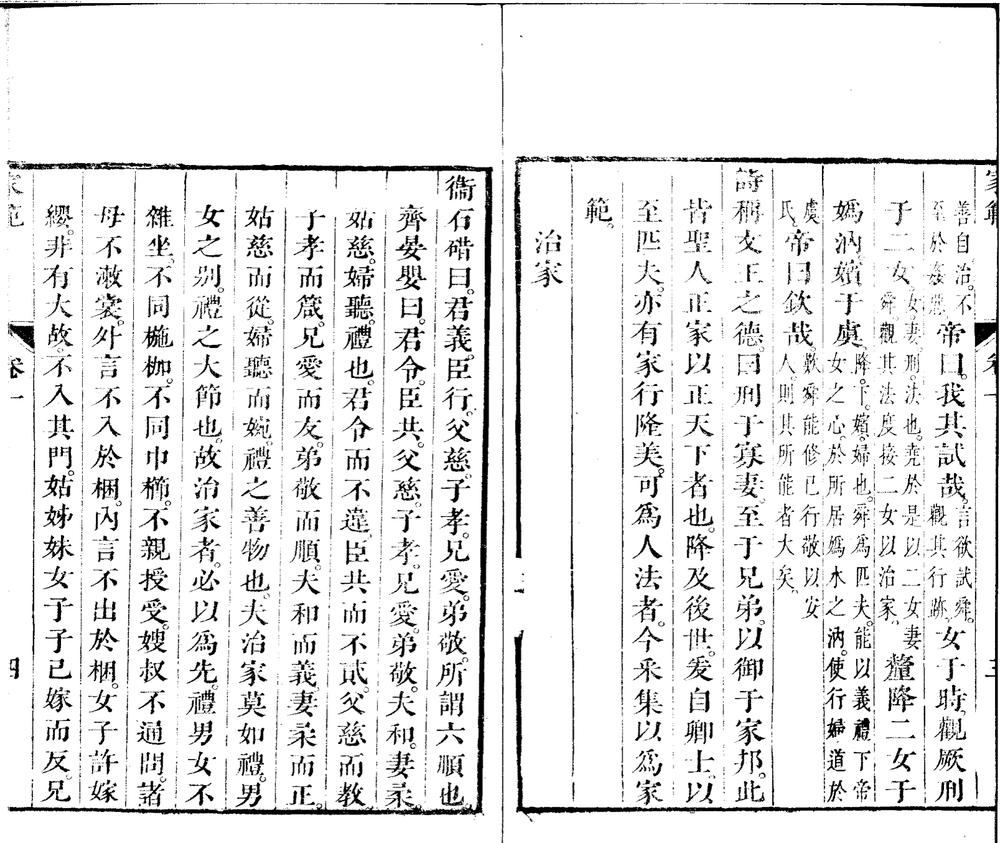 家範
善自治。不
至於姦惡
帝曰。我其試哉。
言欲試舜。
觀其行跡。
女于時。觀厥刑
于二女。
女妻。刑。法也。堯於是以二女妻
舜觀其法度接二女以治家。
釐降二女于
嬀汭。嬪于虞。
降。下。嬪。婦也。舜爲匹夫。能以義禮下帝
女之心。於所居嬀水之汭。使行婦道於
虞
氏。
帝曰欽哉。
歎舜能修己行敬以安
人則其所能者大矣。
詩稱文王之德曰刑于寡妻。至于兄弟。以御于家邦。此
皆聖人正家以正天下者也。降及後世。爰自卿士。以
至匹夫。亦有家行隆美。可爲人法者。今采集以爲家
範。
治家
衞石碏曰。君義。臣行。父慈。子孝。兄愛。弟敬。所謂六順也
齊晏嬰曰。君令。臣共。父慈。子孝。兄愛。弟敬。夫和。妻柔
姑慈。婦聽。禮也。君令而不違。臣共而不貳。父慈而教
子孝而箴。兄愛而友。弟敬而順。夫和而義。妻柔而正。
姑慈而從。婦聽而婉。禮之善物也。夫治家莫如禮。男
女之别。禮之大節也。故治家者。必以爲先。禮男女不
雜坐。不同椸枷。不同巾櫛。不親授受。嫂叔不通問。諸
母不漱裳。外言不入於梱。內言不出於梱。女子許嫁
纓。非有大故。不入其門。姑姊妹女子子已嫁而反。兄
家範
卷一
四